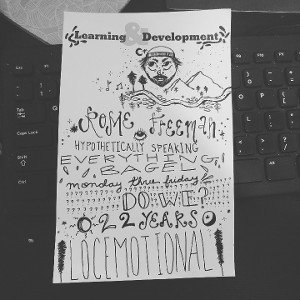 Learning & Development
ROME FREEMAN
HYPOTHETICALLY SPEAKING
EVERYTHING
BAGEL
monday thru friday
DO WE?
0-22 YEARS
LOCEMOTIONAL
Caps Lock
Shift
Ctrl